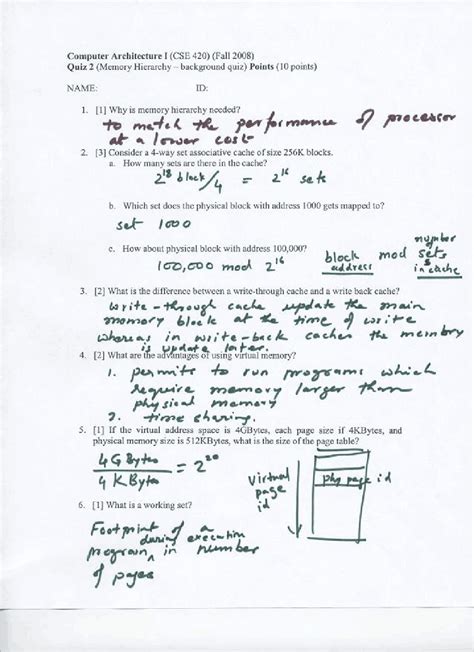 Computer Architecture I (CSE 420) (Fall 2008)
Quiz 2 (Memory Hierarchy – background quiz) Points (10 points)
NAME: ID:
1. [1] Why is memory hierarchy needed?
to match the performance of processor
at a lower cost
2. [3] Consider a 4-way set associative cache of size 256K blocks.
a. How many sets are there in the cache?
2^18 block/4 = 2^16 sets
b. Which set does the physical block with address 1000 gets mapped to?
set 1000
c. How about physical block with address 100,000?
100,000 mod 2^16
block address mod number of sets in cache
3. [2] What is the difference between a write-through cache and a write back cache?
write-through cache update the main
memory block at the time of write
whereas in write-back caches the memory
is update later.
4. [2] What are the advantages of using virtual memory?
1. permits to run programs which
require memory larger than
physical memory
2. time sharing.
5. [1] If the virtual address space is 4GBytes, each page size if 4KBytes, and
physical memory size is 512KBytes, what is the size of the page table?
4 GBytes
4 KBytes
= 2^20
virtual
page
id
phy page id
6. [1] What is a working set?
Footprint of a
program, during execution
in number
of pages